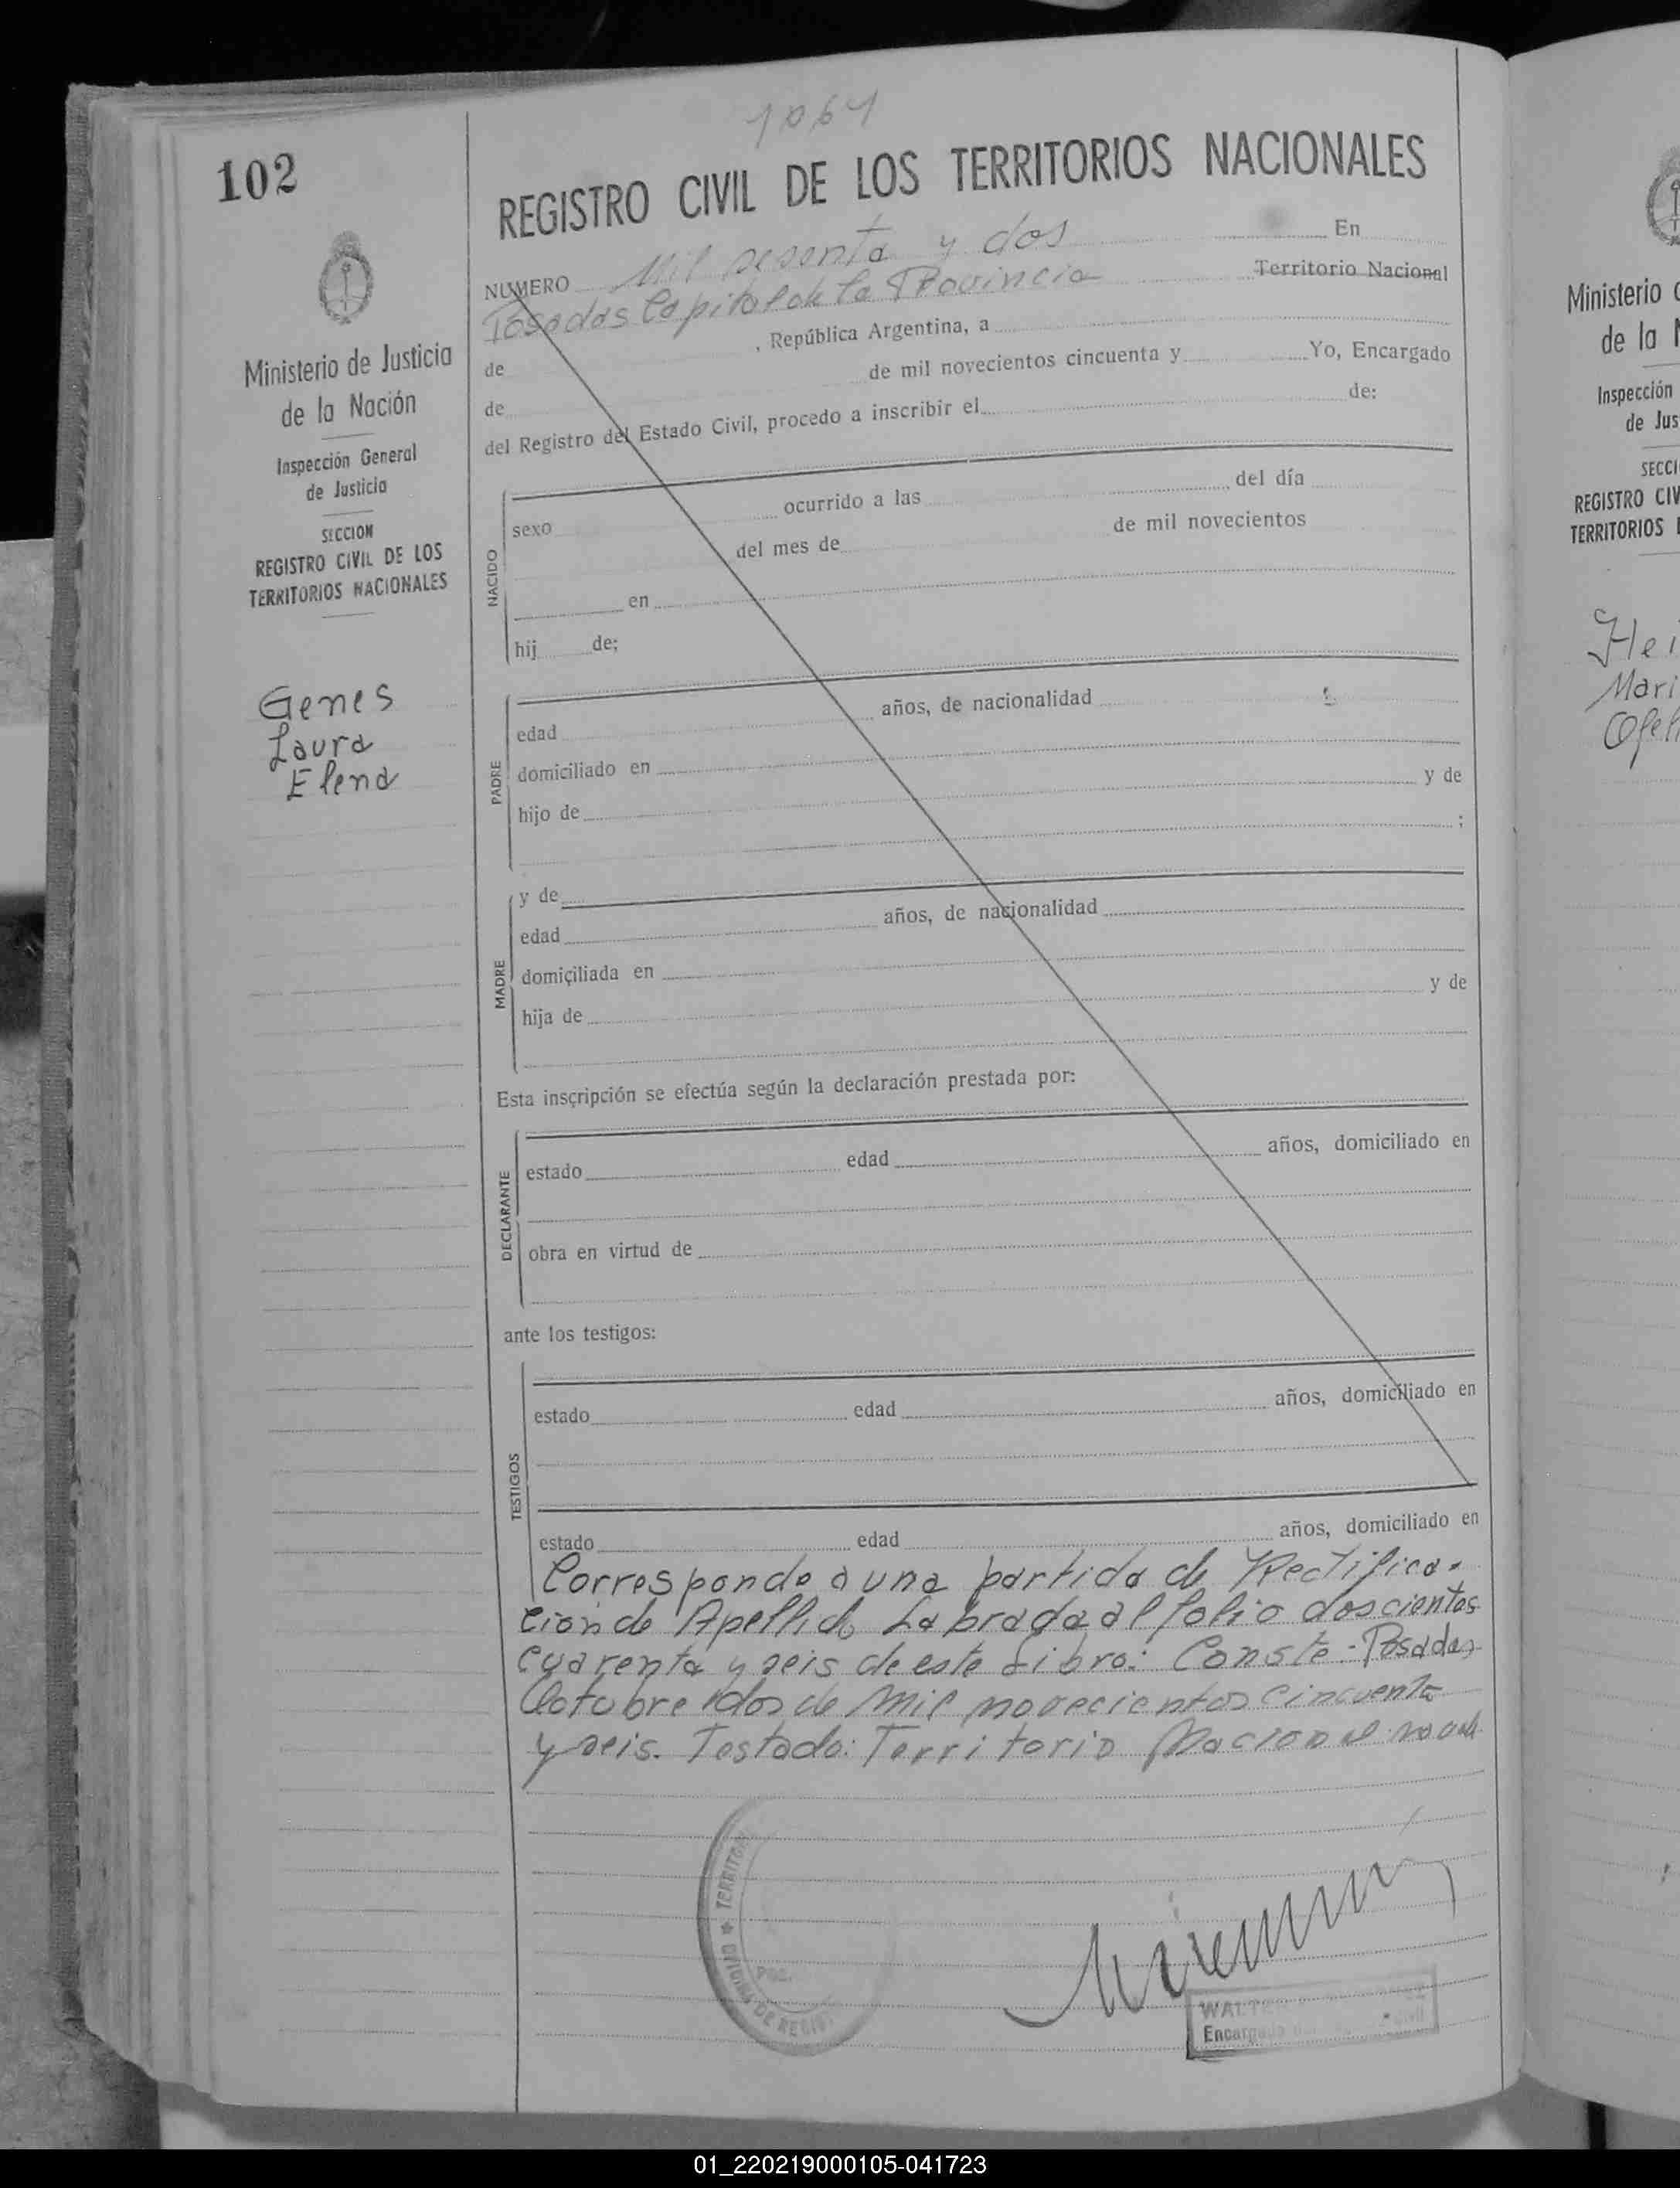 1064
102
REGISTRO CIVIL DE LOS TERRITORIOS NACIONALES
NUMERO Mil sesenta y dos En
Posadas Capital de la Provincia Territorio Nacional
de , República Argentina, a
de de mil novecientos cincuenta y Yo, Encargado
del Registro del Estado Civil, procedo a inscribir el de:
Ministerio de Justicia
de la Nación
Inspección General
de Justicia
SECCION
REGISTRO CIVIL DE LOS
TERRITORIOS NACIONALES
Genes
Laura
Elena
NACIDO
sexo ocurrido a las del día
del mes de de mil novecientos
en
hij de;
PADRE
edad años, de nacionalidad
domiciliado en
hijo de y de
;
MADRE
y de
edad años, de nacionalidad
domiciliada en
hija de y de
Esta inscripción se efectúa según la declaración prestada por:
DECLARANTE
estado edad años, domiciliado en
obra en virtud de
ante los testigos:
TESTIGOS
estado edad años, domiciliado en
estado edad años, domiciliado en
Corresponde a una partida de Rectifica-
cion de Apellido Labrada al folio doscientos
cuarenta y seis de este Libro: Conste.- Posadas
Octubre dos de Mil novecientos cincuenta
y seis. Testado: Territorio Nacional no vale
TERRITOR
OFICINA DE REGIS
POS.
WALTER
Encargado
Civil
Ministerio
de la
Inspección
de Jus
SECCI
REGISTRO CIV
TERRITORIOS
Hei
Mari
Ofel
01_220219000105-041723